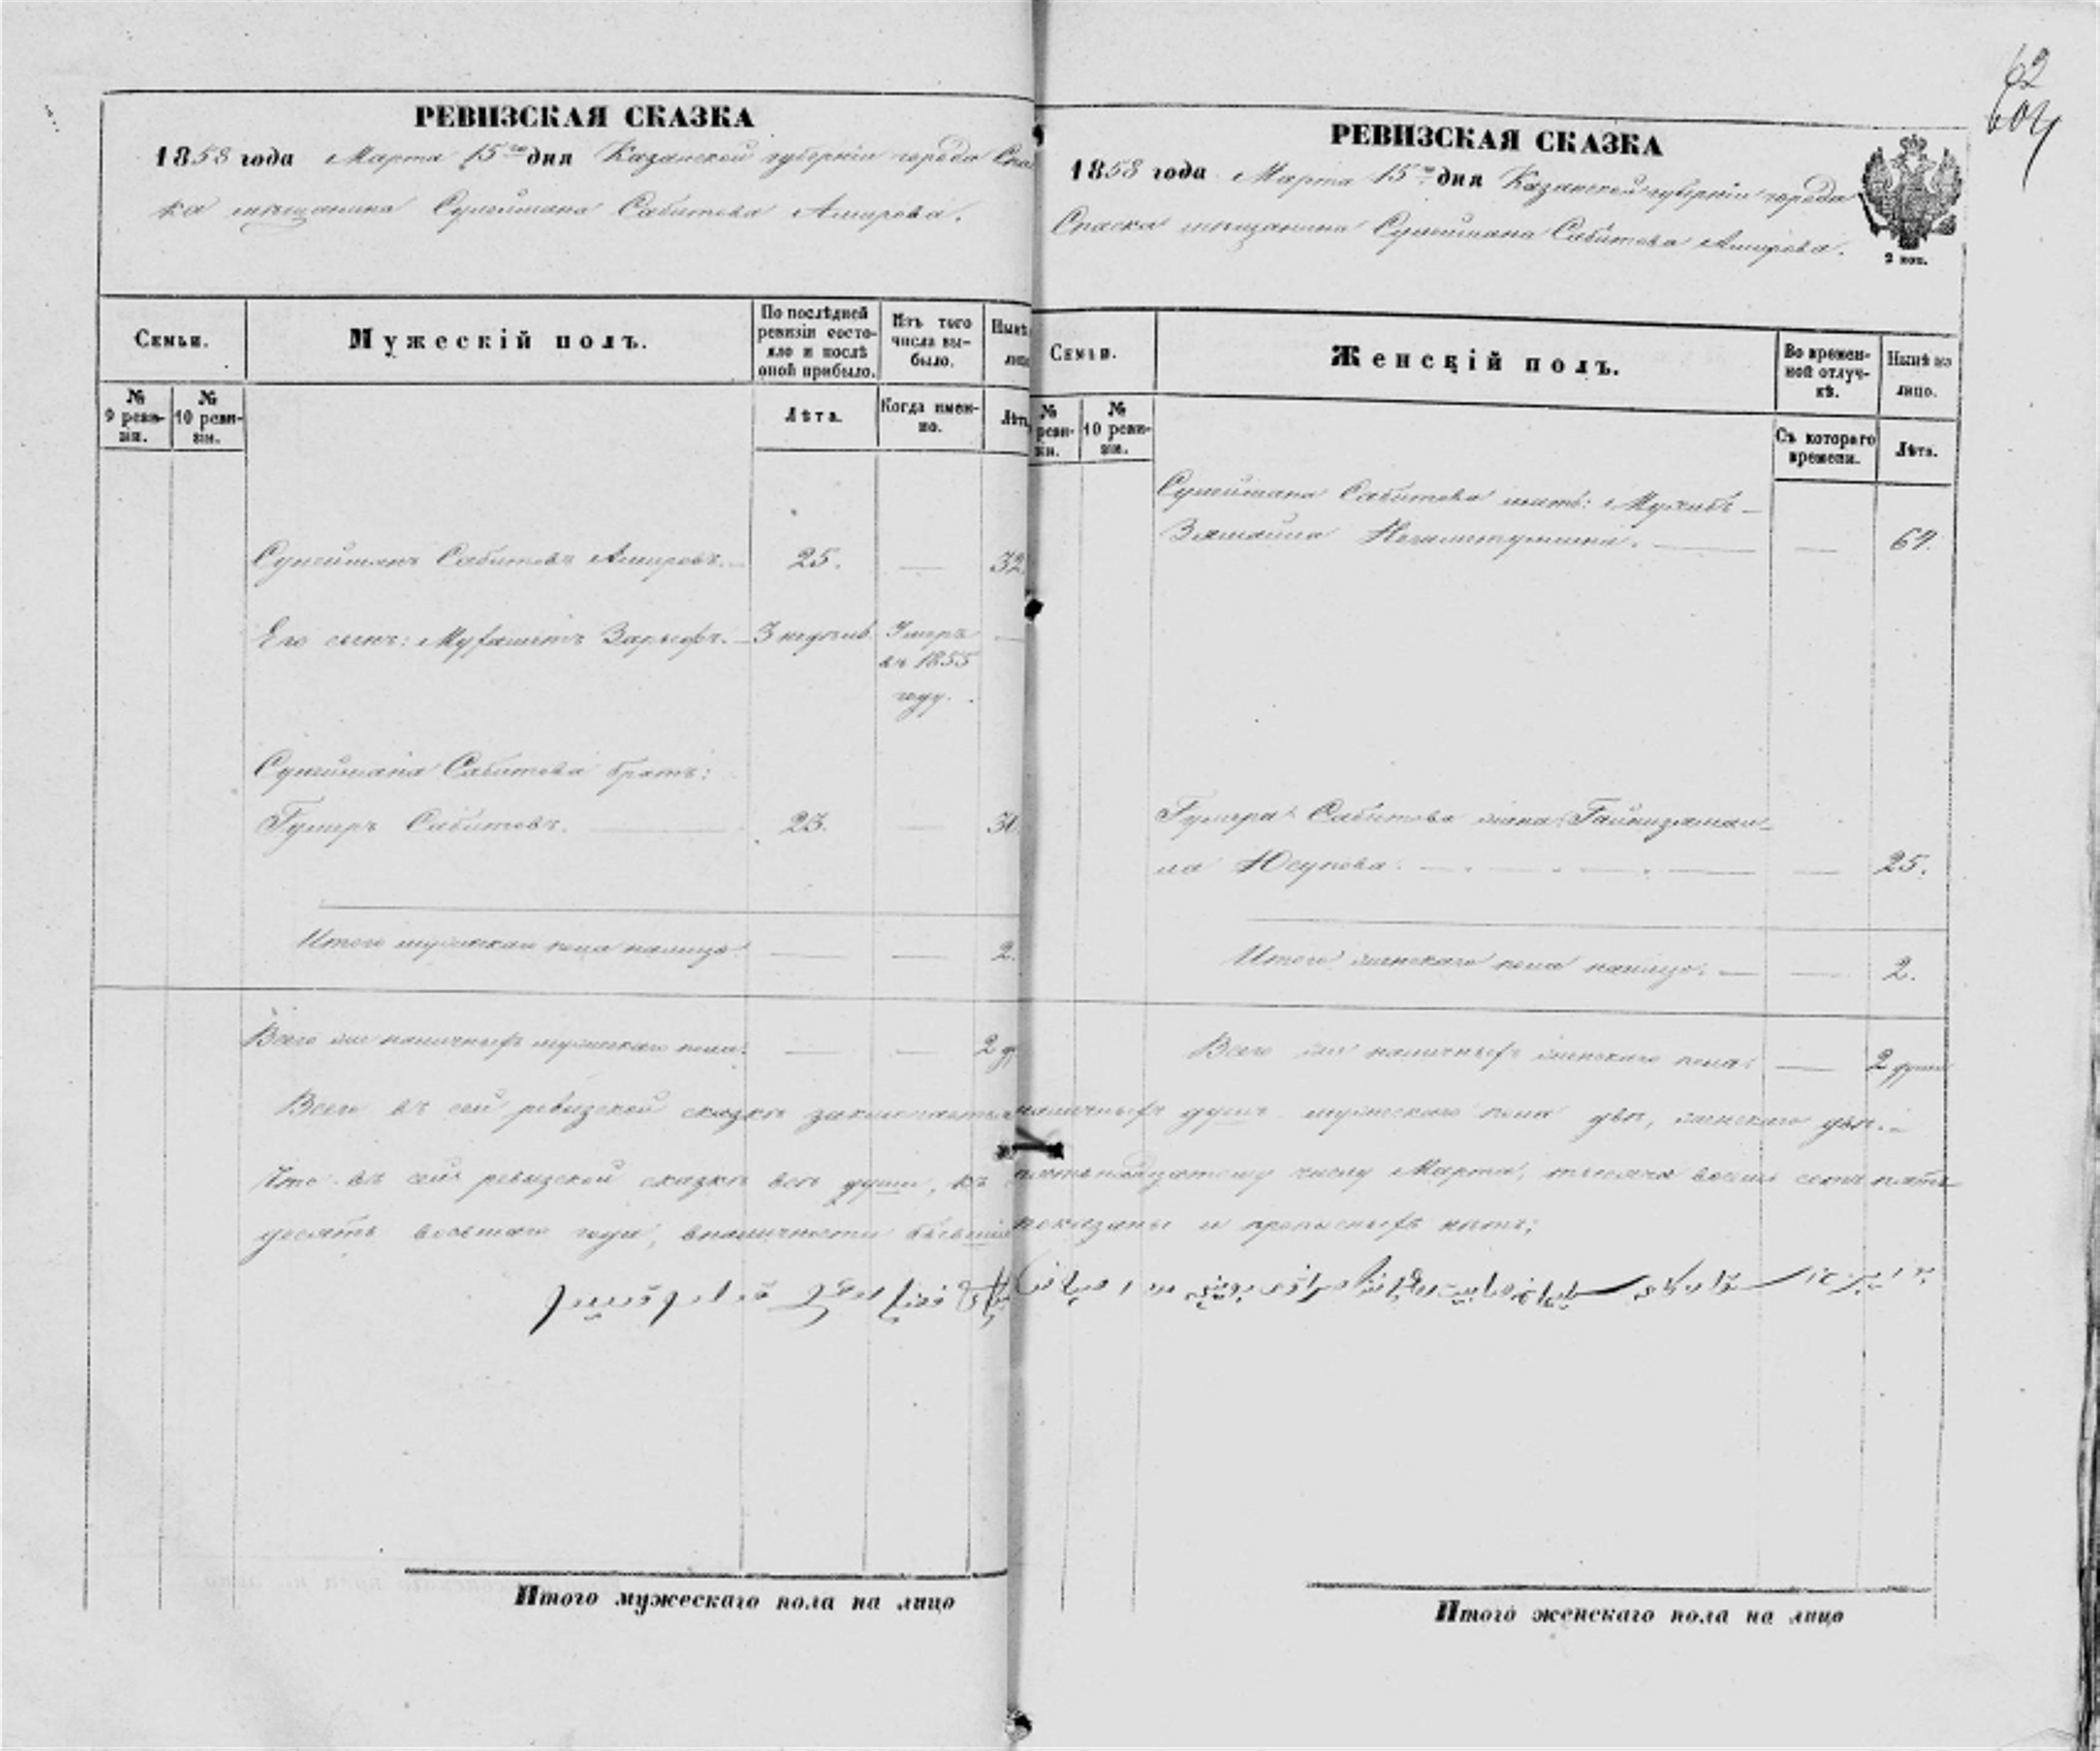 62
604
РЕВИЗСКАЯ СКАЗКА
1858 года Марта 15го дня Казанской губерніи города Спас
ка мѣщанина Сулеймана Сабитова Амирова.
Семьи.
Мужескій полъ.
По послѣдней ревизіи состояло и послѣ оной прибыло.
Изъ того числа выбыло.
Нынѣ
№ 9 ревизіи.
№ 10 ревизіи.
Лѣта.
Когда именно.
Лѣта
Сулейманъ Сабитовъ Амировъ. 25. — 32.
Его сынъ: 3 недѣль Умеръ —
въ 1855
году.
Сулеймана Сабитова братъ:
Гумеръ Сабитовъ. 23. — 30
Итого мужескаго пола налицо. — — 2.
Всего же наличныхъ мужескаго пола. — — 2
РЕВИЗСКАЯ СКАЗКА
1858 года Марта 15го дня Казанской губерніи города
Спаска мѣщанина Сулеймана Сабитова Амирова.
2 коп.
Семьи.
Женскій полъ.
Во временной отлучкѣ.
Нынѣ на лицо.
№ ревизіи.
№ 10 ревизіи.
Съ котораго времени.
Лѣта.
Сулеймана Сабитова мать:
— 69.
Гумера Сабитова жена Гайнизямал-
ла Юсупова. — 25.
Итого женскаго пола налицо. — — 2.
Всего же наличныхъ женскаго пола: — 2 души
Всего въ сей ревизской сказкѣ заключается наличныхъ душъ мужескаго пола двѣ, женскаго двѣ.
Что въ сей ревизской сказкѣ всѣ души, къ пятьнадцатому числу Марта, тысяча восемь сотъ пять
десятъ восьмаго года, въ наличности бывшіе показаны и прописныхъ нѣтъ;
Итого мужескаго пола на лицо
Итого женскаго пола на лицо